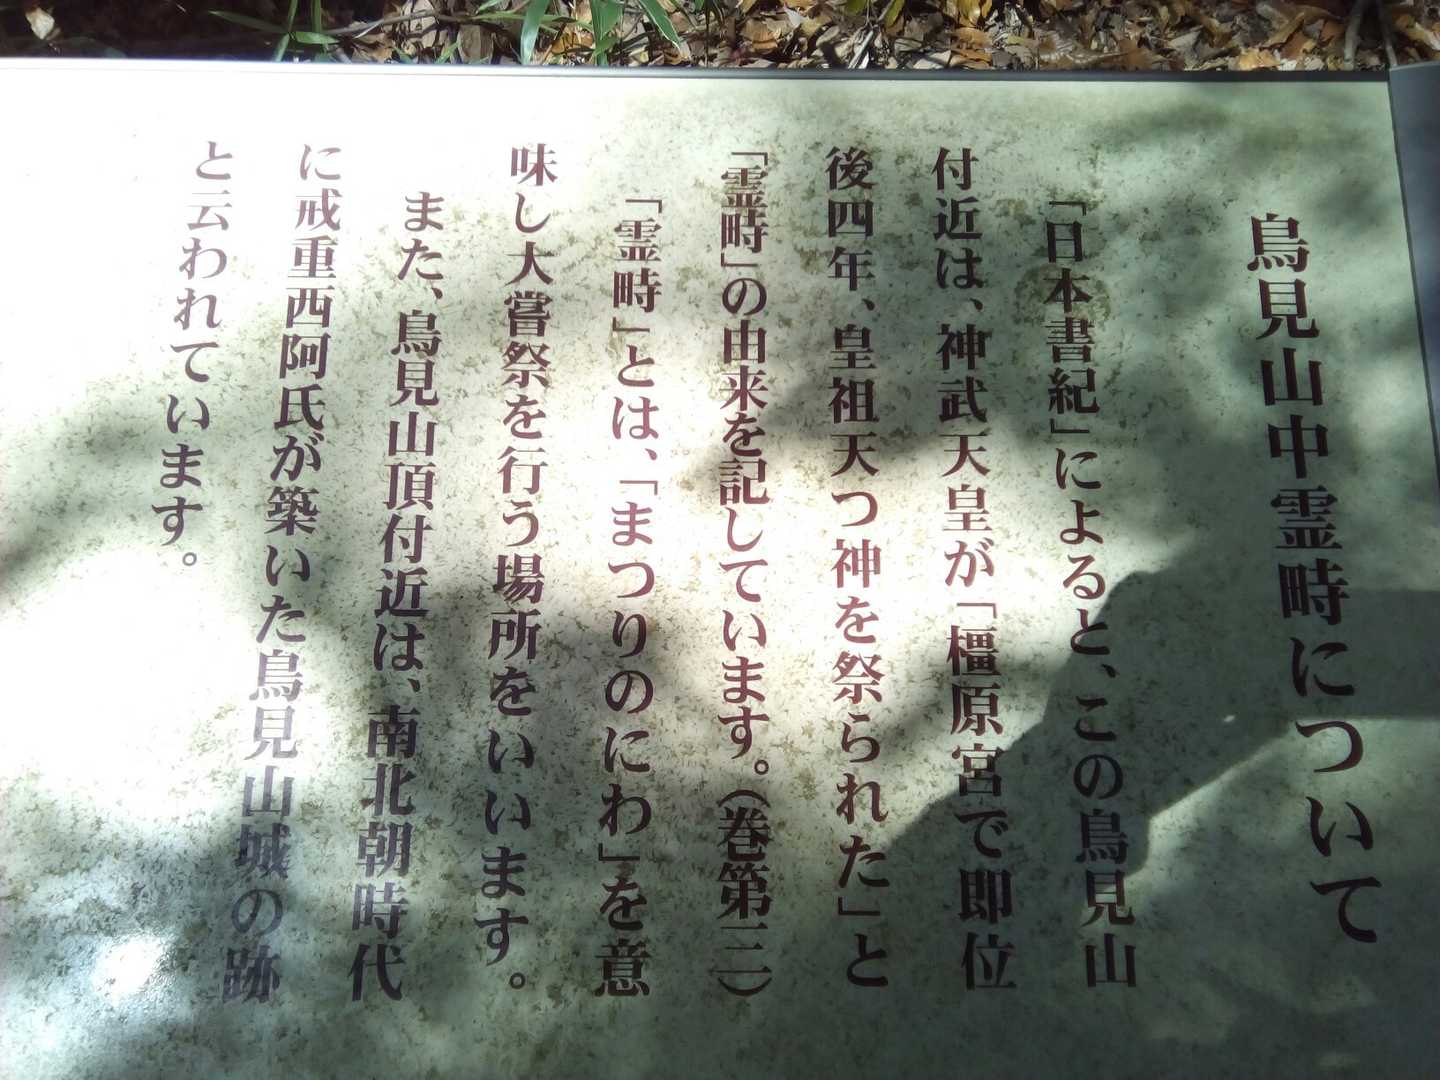 鳥見山中霊畤について
「日本書紀」によると、この鳥見山
付近は、神武天皇が「橿原宮で即位
後四年、皇祖天つ神を祭られた」と
「霊畤」の由来を記しています。(巻第三)
「霊畤」とは、「まつりのにわ」を意
味し大嘗祭を行う場所をいいます。
また、鳥見山頂付近は、南北朝時代
に戒重西阿氏が築いた鳥見山城の跡
と云われています。